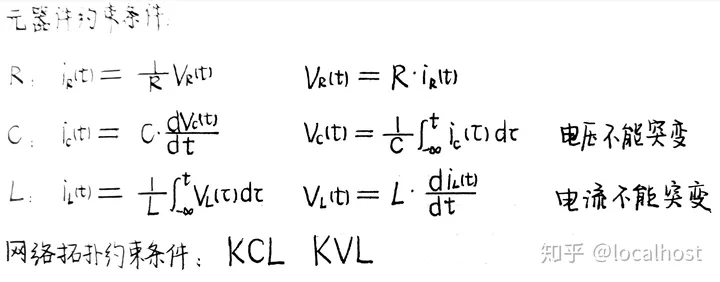 元器件约束条件:
R: i_R(t) = 1/R V_R(t) V_R(t) = R·i_R(t)
C: i_c(t) = C·dV_c(t)/dt V_c(t) = 1/C ∫_{-∞}^{t} i_c(τ)dτ 电压不能突变
L: i_L(t) = 1/L ∫_{-∞}^{t} V_L(τ)dτ V_L(t) = L·di_L(t)/dt 电流不能突变
网络拓扑约束条件: KCL KVL
知乎 @localhost